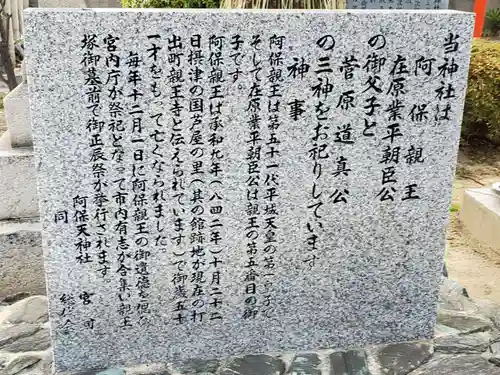 当神社は
阿保親王
在原業平朝臣公
の御父子と
菅原道真公
の三神をお祀りしています
神事
阿保親王は第五十一代平城天皇の第一皇子で
そして在原業平朝臣公は親王の第五番目の御
子です。
阿保親王は承和九年(八四二年)十月二十二
日摂津の国芦屋の里(其の館跡地が現在の打
出町親王寺と伝えられています)で御歳五十
一才をもって亡くなられました。
毎年十二月一日に阿保親王の御遺徳を偲び
宮内庁が祭祀となって市内有志が合集い親王
塚御墓前で御正辰祭が挙行されます。
阿保天神社 宮司
同 総代会